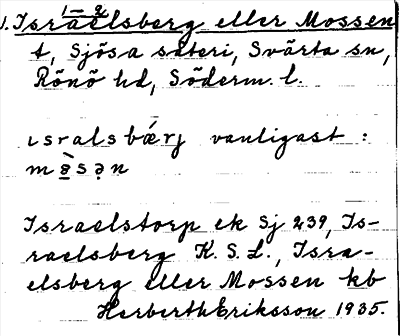 1-2
1. Israelsberg eller Mossen
t, Sjösa säteri, Svärta sn,
Rönö hd, Söderm. l.
ısralsbǽrj vanligast :
mə̀sən
Israelstorp ek Sj 239, Is-
raelsberg K. S. L., Isra-
elsberg eller Mossen kb
Herberth Eriksson 1935.